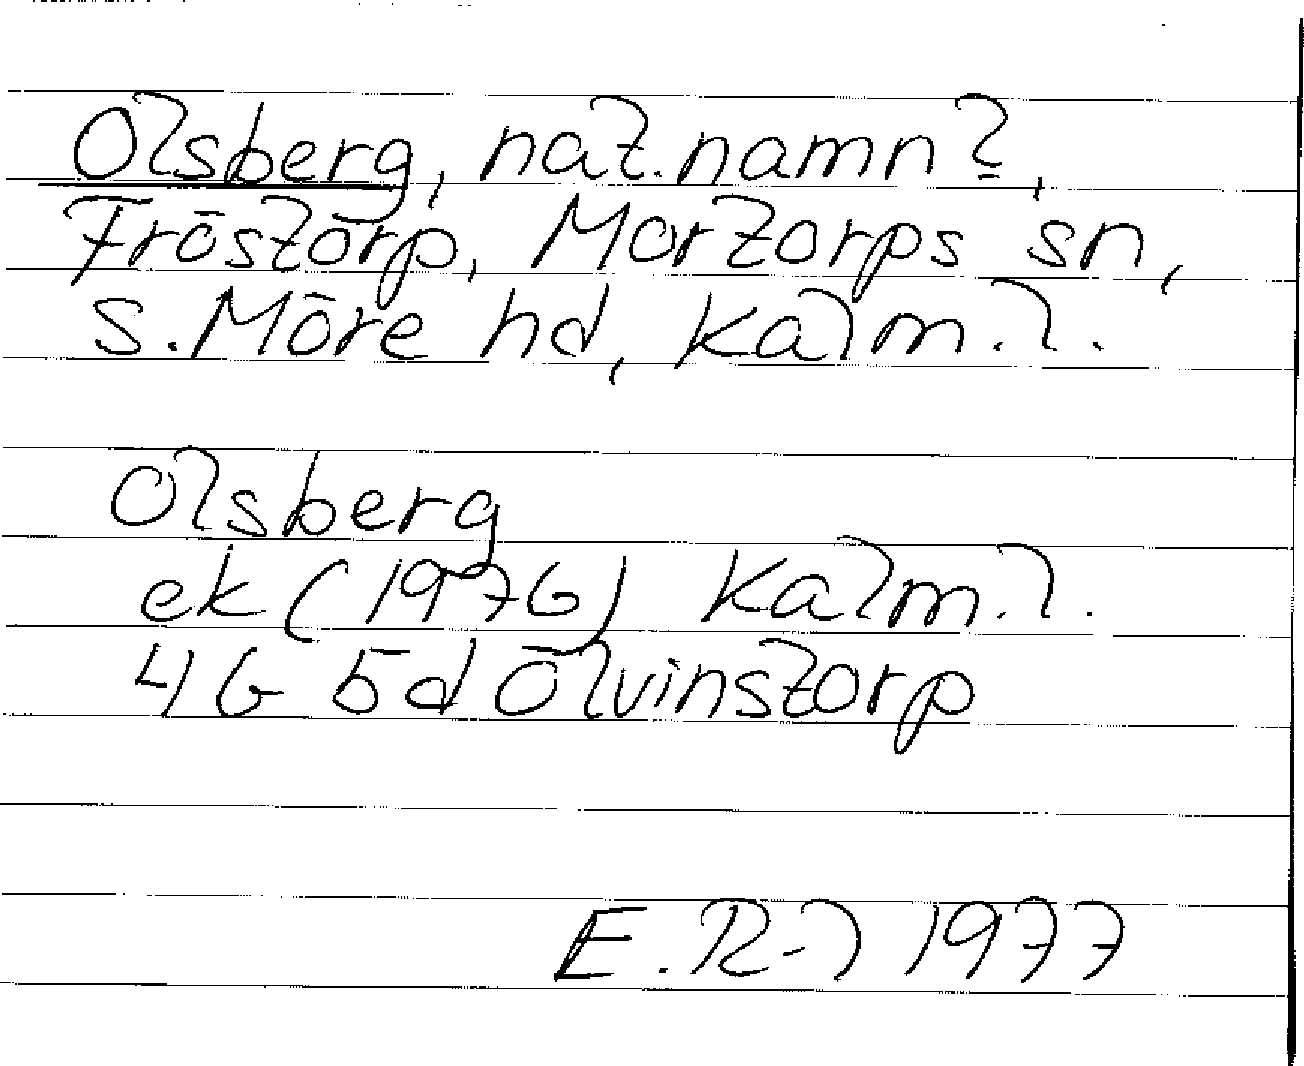 Olsberg, nat. namn?,
Fröstorp, Mortorps sn,
S. Möre hd, Kalm. l.
Olsberg
ek (1976) Kalm. l.
4G 5d Ölvinstorp
E. R-l 1977